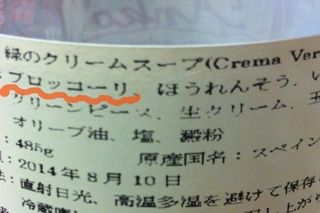 緑のクリームスープ(Crema Ver
ブロッコーリ、ほうれんそう、い
グリーンピース、生クリーム、玉
オリーブ油、塩、澱粉
：485g 原産国名：スペイン
：2014年8月10日
法：直射日光、高温多湿を避けて保存
冷蔵庫